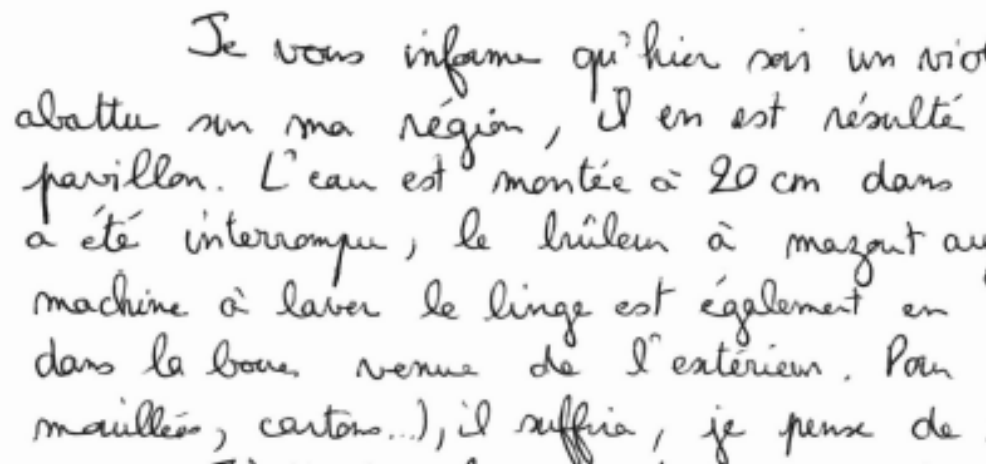 Je vous informe qu'hier soir un viol
abattu sur ma région, il en est résulté
pavillon. L'eau est montée à 20 cm dans
a été interrompu, le brûleur à mazout au
machine à laver le linge est également en
dans la boue venue de l'extérieur. Pour
mouillées, cartons...), il suffira, je pense de